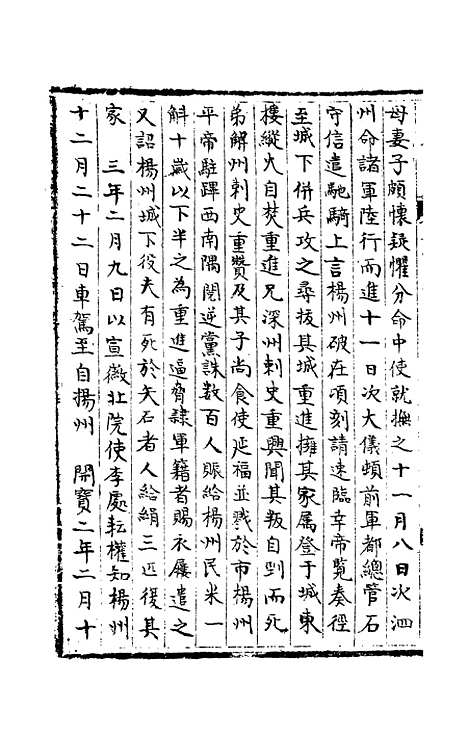 母妻子頗懷疑懼分命中使就撫之十一月八日次泗
州命諸軍陸行而進十一日次大儀頓前軍都總管石
守信遣馳騎上言楊州破在頃刻請速臨幸帝覽奏徑
至城下併兵攻之尋拔其城重進擁其家属登于城東
樓縱火自焚重進兄深州刺史重興聞其叛自剄而死
弟解州刺史重贊及其子尚食使延福並戮於市楊州
平帝駐蹕西南隅閱逆黨誅數百人賑給楊州民米一
斛十歲以下半之為重進逼脅隸軍籍者賜衣屨遣之
又詔楊州城下役夫有死於矢石者人給絹三匹復其
家　三年二月九日以宣徽北院使李處耘權知楊州
十二月二十二日車駕至自揚州　開寶二年二月十